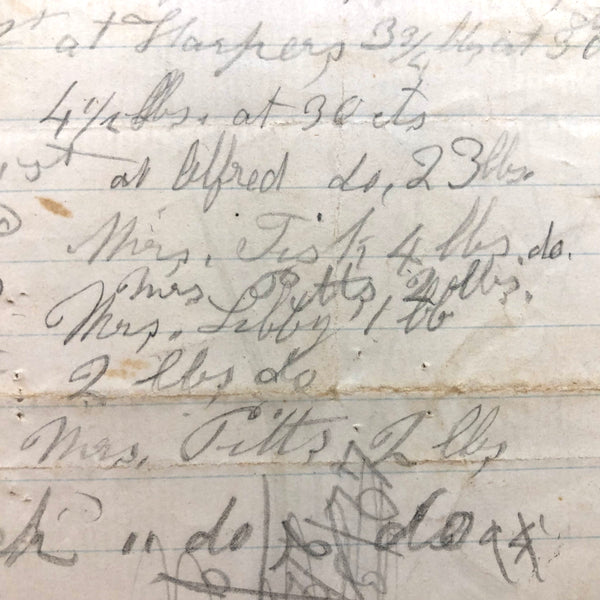 at Harpers 3 3/4 lbs at 30
4 1/2 lbs. at 30 cts
at Alfred do, 23 lbs.
Mrs. Fisk 4 lbs. do.
Mrs Pitts 2 lbs.
Mrs. Libby 1 lb
2 lbs do
Mrs. Pitts 2 lbs
" do do